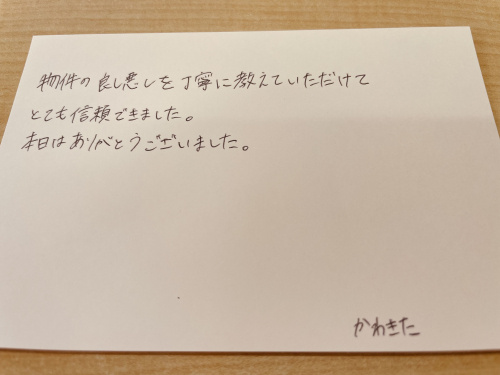 物件の良し悪しを丁寧に教えていただけて
とても信頼できました。
本日はありがとうございました。
かわきた